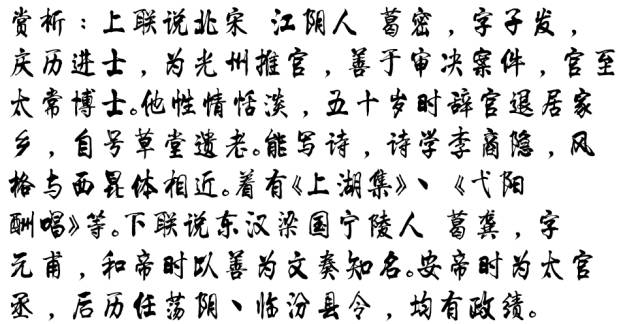 赏析：上联说北宋 江阴人 葛密，字子发，
庆历进士，为光州推官，善于审决案件，官至
太常博士。他性情恬淡，五十岁时辞官退居家
乡，自号草堂遗老。能写诗，诗学李商隐，风
格与西昆体相近。着有《上湖集》丶 《弋阳
酬唱》等。下联说东汉梁国宁陵人 葛龚，字
元甫，和帝时以善为文奏知名。安帝时为太官
丞，后历任荡阴丶临汾县令，均有政绩。